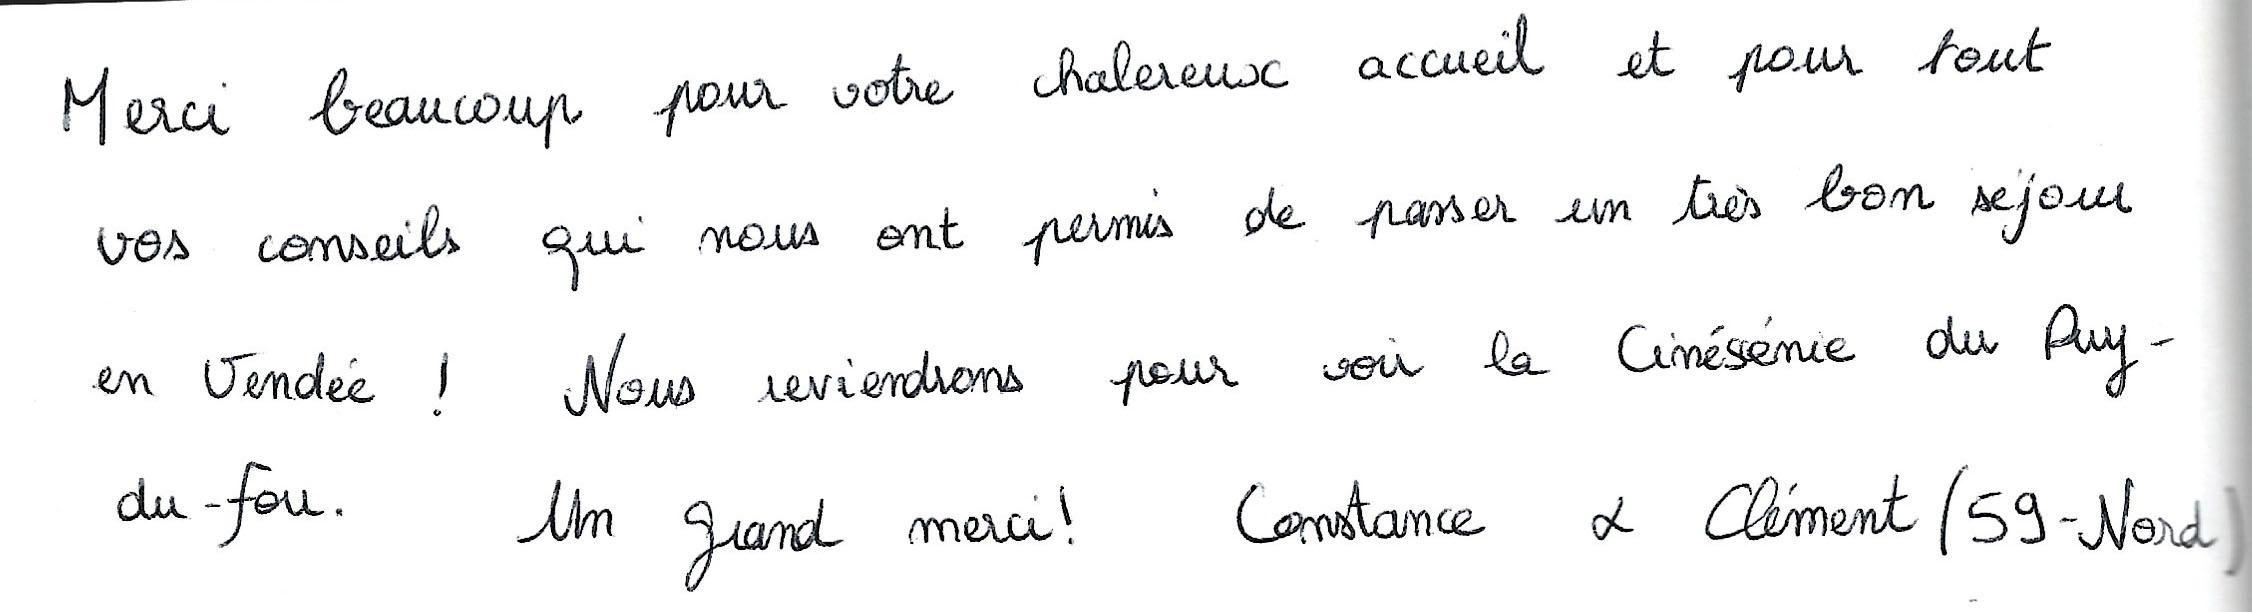 Merci beaucoup pour votre chalereux accueil et pour tout
vos conseils qui nous ont permis de passer un très bon séjour
en Vendée ! Nous reviendrons pour voir la Cinésénie du Puy-
du-fou. Un grand merci! Constance & Clément (59-Nord)